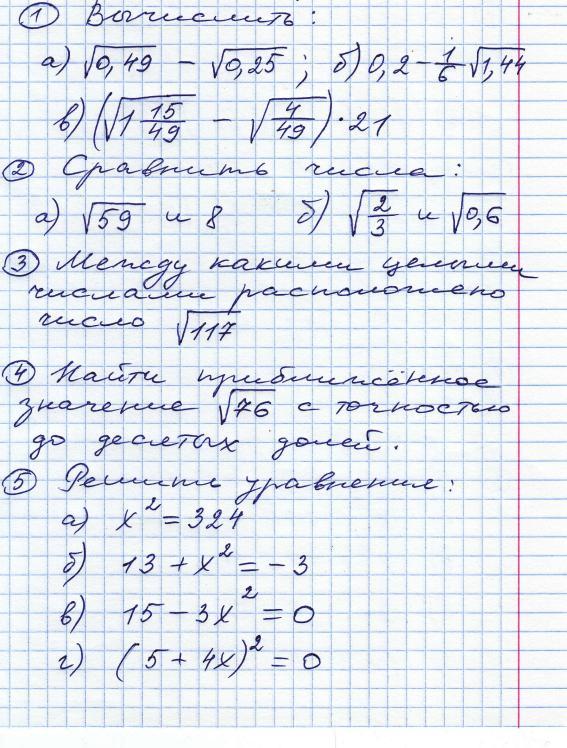 1 Вычислить:
а) √0,49 − √0,25; б) 0,2 − 1/6 √1,44
в) (√1 15/49 − √4/49) · 21
2 Сравнить числа:
а) √59 и 8 б) √2/3 и √0,6
3 Между какими целыми
числами расположено
число √117
4 Найти приближённое
значение √76 с точностью
до десятых долей.
5 Решить уравнения:
а) x² = 324
б) 13 + x² = −3
в) 15 − 3x² = 0
г) (5 + 4x)² = 0